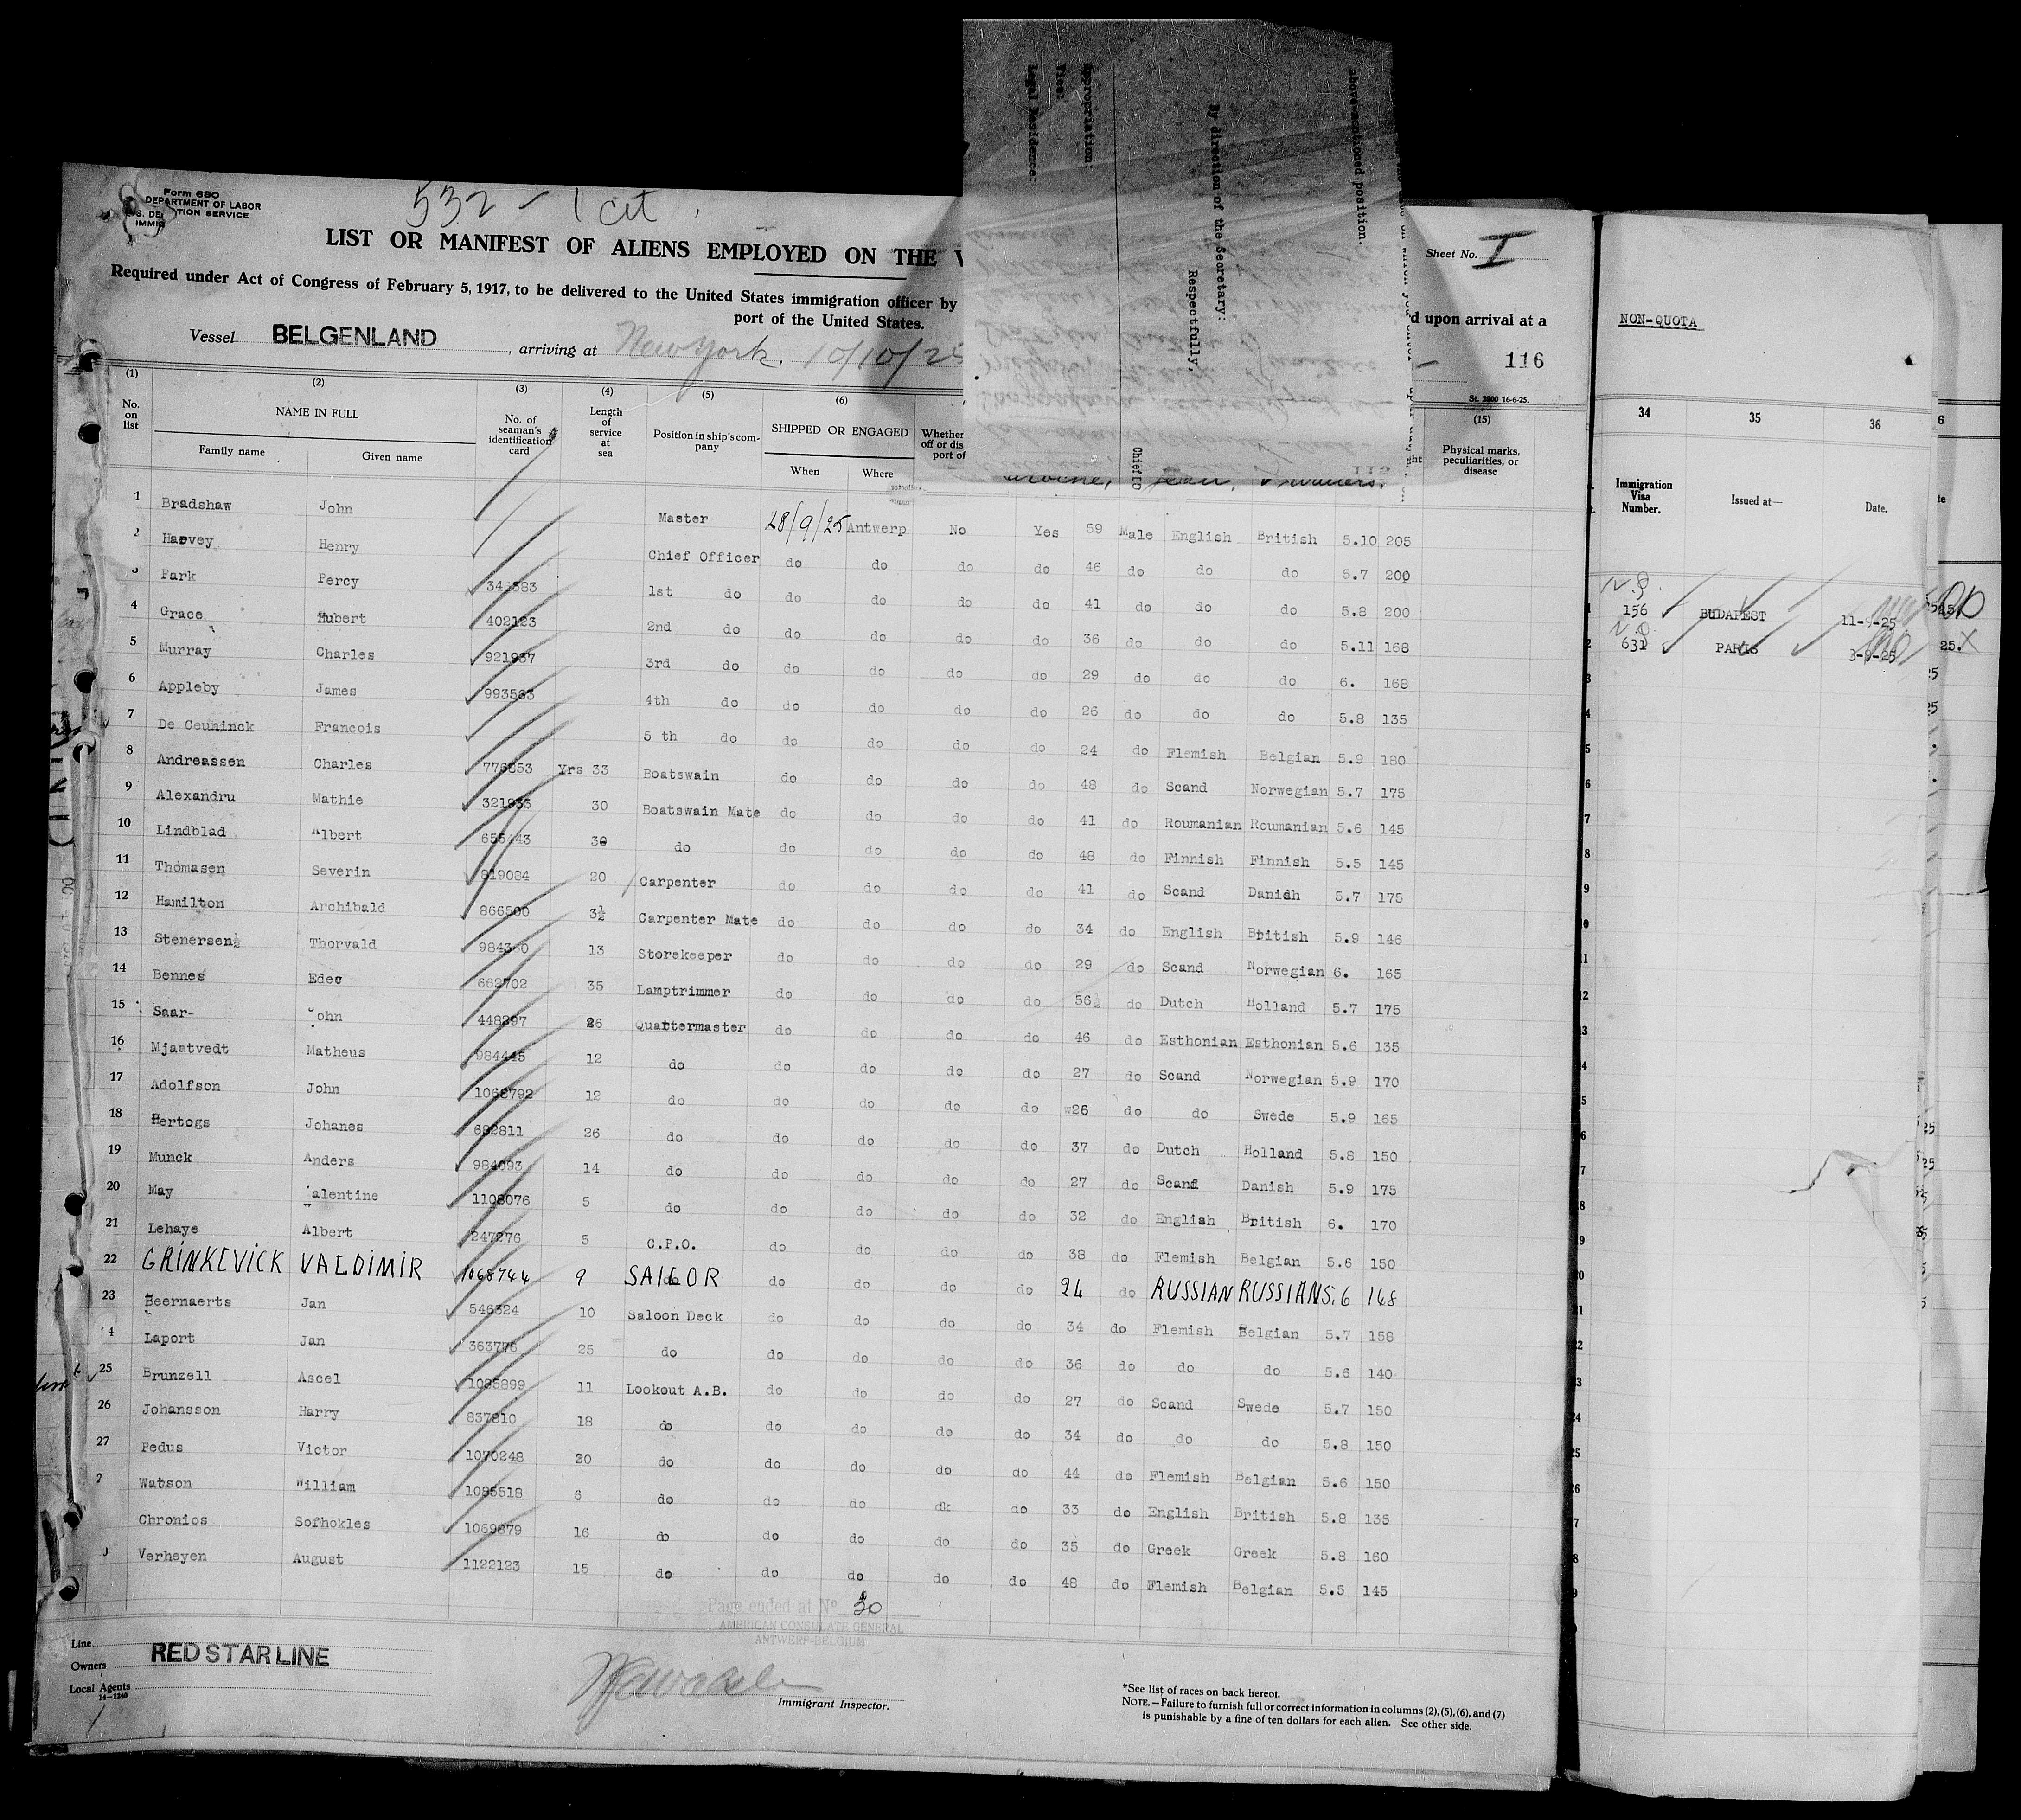 532 - 1 cet
Form 680
DEPARTMENT OF LABOR
LIST OR MANIFEST OF ALIENS EMPLOYED ON THE
Required under Act of Congress of February 5, 1917, to be delivered to the United States immigration officer by
d upon arrival at a
port of the United States.
Sheet No. I
Vessel BELGENLAND, arriving at New York. 10/10/25
116
St. 2800 16-6-25.
above-mentioned position.
By direction of the Secretary:
Respectfully,
Appropriation:
Vice:
Legal Residence:
115
(1) (2) (3) (4) (5) (6) (15)
No. on list NAME IN FULL No. of seaman's identification card Length of service at sea Position in ship's company SHIPPED OR ENGAGED Physical marks, peculiarities, or disease
Family name Given name When Where
1 Bradshaw John Master 28/9/25 Antwerp No Yes 59 Male English British 5.10 205
2 Harvey Henry Chief Officer do do do do 46 do do do 5.7 200
3 Park Percy 342583 1st do do do do do 41 do do do 5.8 200
4 Grace Hubert 402123 2nd do do do do do 36 do do do 5.11 168
5 Murray Charles 921937 3rd do do do do do 29 do do do 6. 168
6 Appleby James 993563 4th do do do do do 26 do do do 5.8 135
7 De Ceuninck Francois 5 th do do do do do 24 do Flemish Belgian 5.9 180
8 Andreassen Charles 776853 Yrs 33 Boatswain do do do do 48 do Scand Norwegian 5.7 175
9 Alexandru Mathie 321935 30 Boatswain Mate do do do do 41 do Roumanian Roumanian 5.6 145
10 Lindblad Albert 655443 30 do do do do do 48 do Finnish Finnish 5.5 145
11 Thomasen Severin 819084 20 Carpenter do do do do 41 do Scand Danish 5.7 175
12 Hamilton Archibald 866500 3½ Carpenter Mate do do do do 34 do English British 5.9 146
13 Stenersen Thorvald 984360 13 Storekeeper do do do do 29 do Scand Norwegian 6. 165
14 Bennes Edec 662702 35 Lamptrimmer do do do do 56 do Dutch Holland 5.7 175
15 Saar- John 448397 26 Quartermaster do do do do 46 do Esthonian Esthonian 5.6 135
16 Mjaatvedt Matheus 984445 12 do do do do do 27 do Scand Norwegian 5.9 170
17 Adolfson John 1068792 12 do do do do do 26 do do Swede 5.9 165
18 Hertogs Johanes 682811 26 do do do do do 37 do Dutch Holland 5.8 150
19 Munck Anders 984093 14 do do do do do 27 do Scand Danish 5.9 175
20 May Valentine 1108076 5 do do do do do 32 do English British 6. 170
21 Lehaye Albert 247276 5 C.P.O. do do do do 38 do Flemish Belgian 5.6 150
22 GRINKEVICK VALDIMIR 1068744 9 SAILOR do do do do 24 do RUSSIAN RUSSIAN 5.6 148
23 Beernaerts Jan 546324 10 Saloon Deck do do do do 34 do Flemish Belgian 5.7 158
4 Laport Jan 363776 25 do do do do do 36 do do do 5.6 140
25 Brunzell Ascel 1085899 11 Lookout A.B. do do do do 27 do Scand Swede 5.7 150
26 Johansson Harry 837810 18 do do do do do 34 do do do 5.8 150
27 Pedus Victor 1070248 30 do do do do do 44 do Flemish Belgian 5.6 150
2 Watson William 1085518 6 do do do dk do 33 do English British 5.8 135
Chronios Sofhokles 1069879 16 do do do do do 35 do Greek Greek 5.8 160
Verheyen August 1122123 15 do do do do do 48 do Flemish Belgian 5.5 145
Page ended at No 30
AMERICAN CONSULATE GENERAL
ANTWERP-BELGIUM
Line
Owners RED STAR LINE
Local Agents
14-1240
Immigrant Inspector.
*See list of races on back hereof.
NOTE.—Failure to furnish full or correct information in columns (2), (5), (6), and (7)
is punishable by a fine of ten dollars for each alien. See other side.
NON-QUOTA
34 35 36
Immigration Visa Number. Issued at— Date.
156 BUDAPEST 11-9-25
631 PARIS 3-9-25